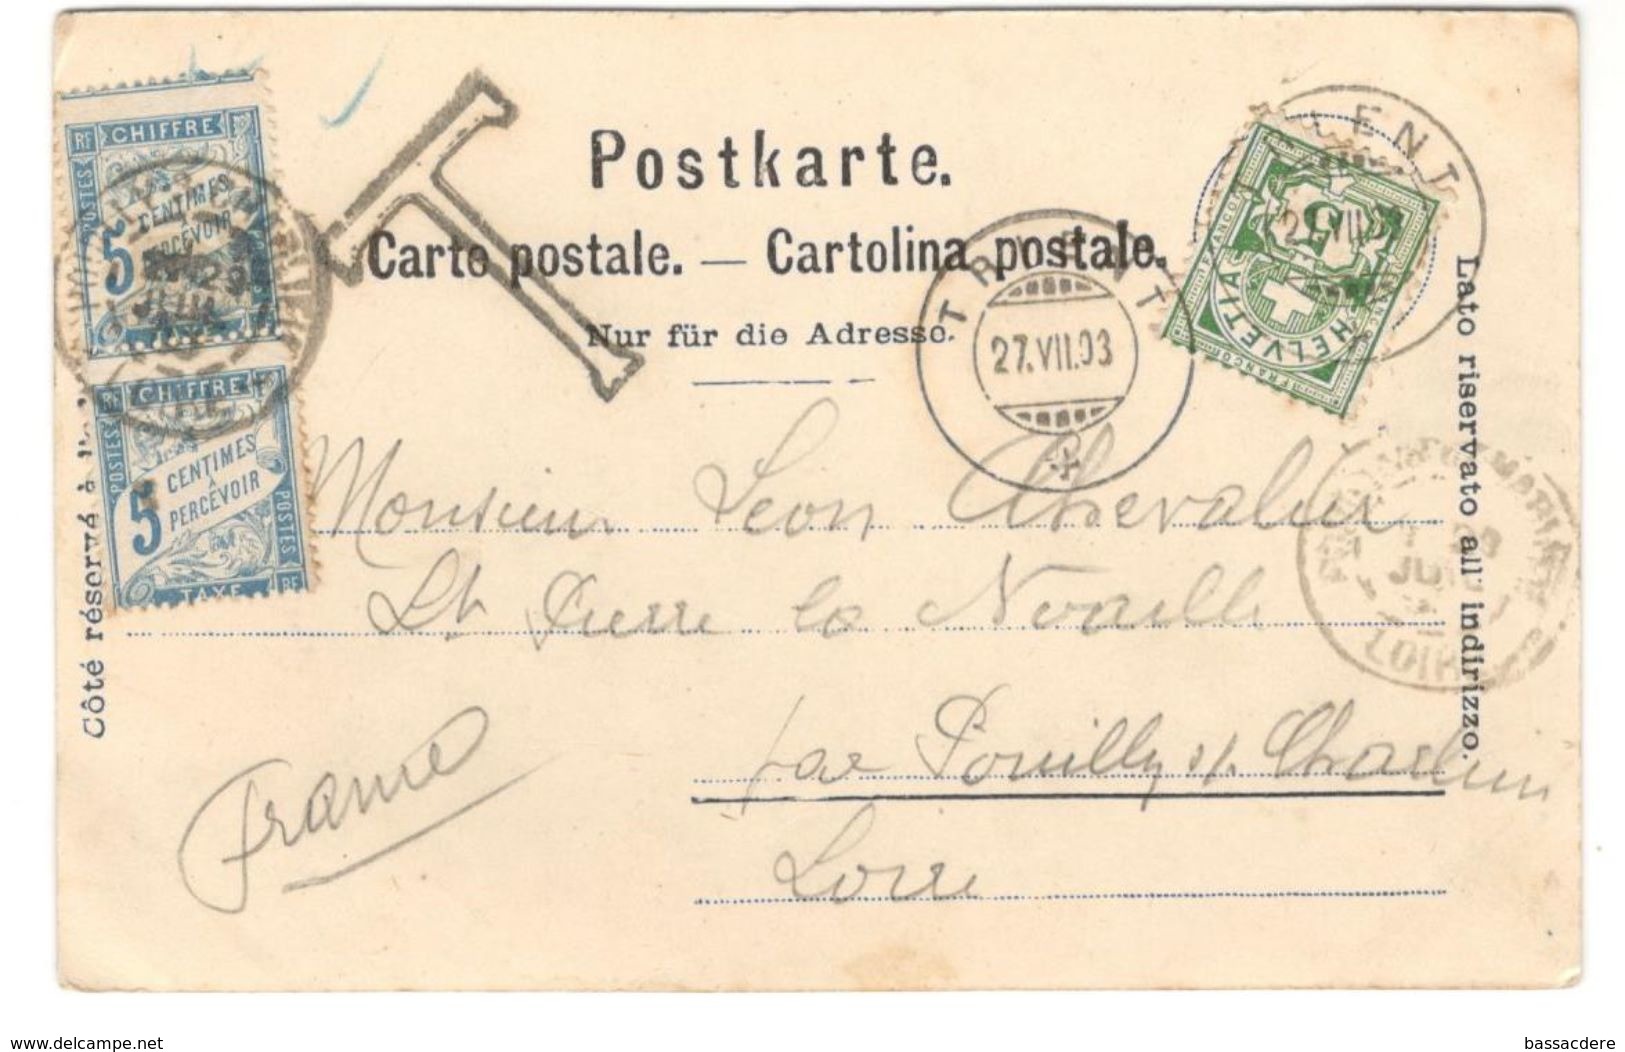 Postkarte.
Carte postale. — Cartolina postale.
Nur für die Adresse.
Côté réservé à
Lato riservato all' indirizzo.
RF CHIFFRE
POSTES
5 CENTIMES
PERCEVOIR
RF CHIFFRE
POSTES
5 CENTIMES
À
PERCEVOIR
POSTES
TAXE RF
T
TRIENT
27.VII.03
TRIENT
27.VII.03
FRANCO
HELVETIA
FRANCO
5
29
JUIL
28
LOIRE
Monsieur Leon Chevalier
St Pierre la Noaille
par Pouilly s/ Charlieu
Loire
France
www.delcampe.net
bassacdere